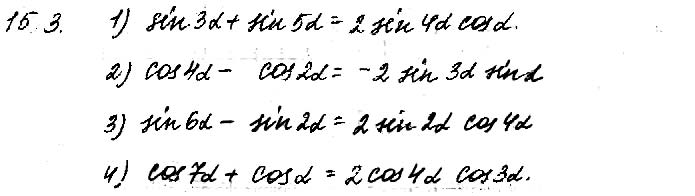 15 3. 1) sin 3α + sin 5α = 2 sin 4α cos α.
2) cos 4α - cos 2α = -2 sin 3α sin α
3) sin 6α - sin 2α = 2 sin 2α cos 4α
4) cos 7α + cos α = 2 cos 4α cos 3α.